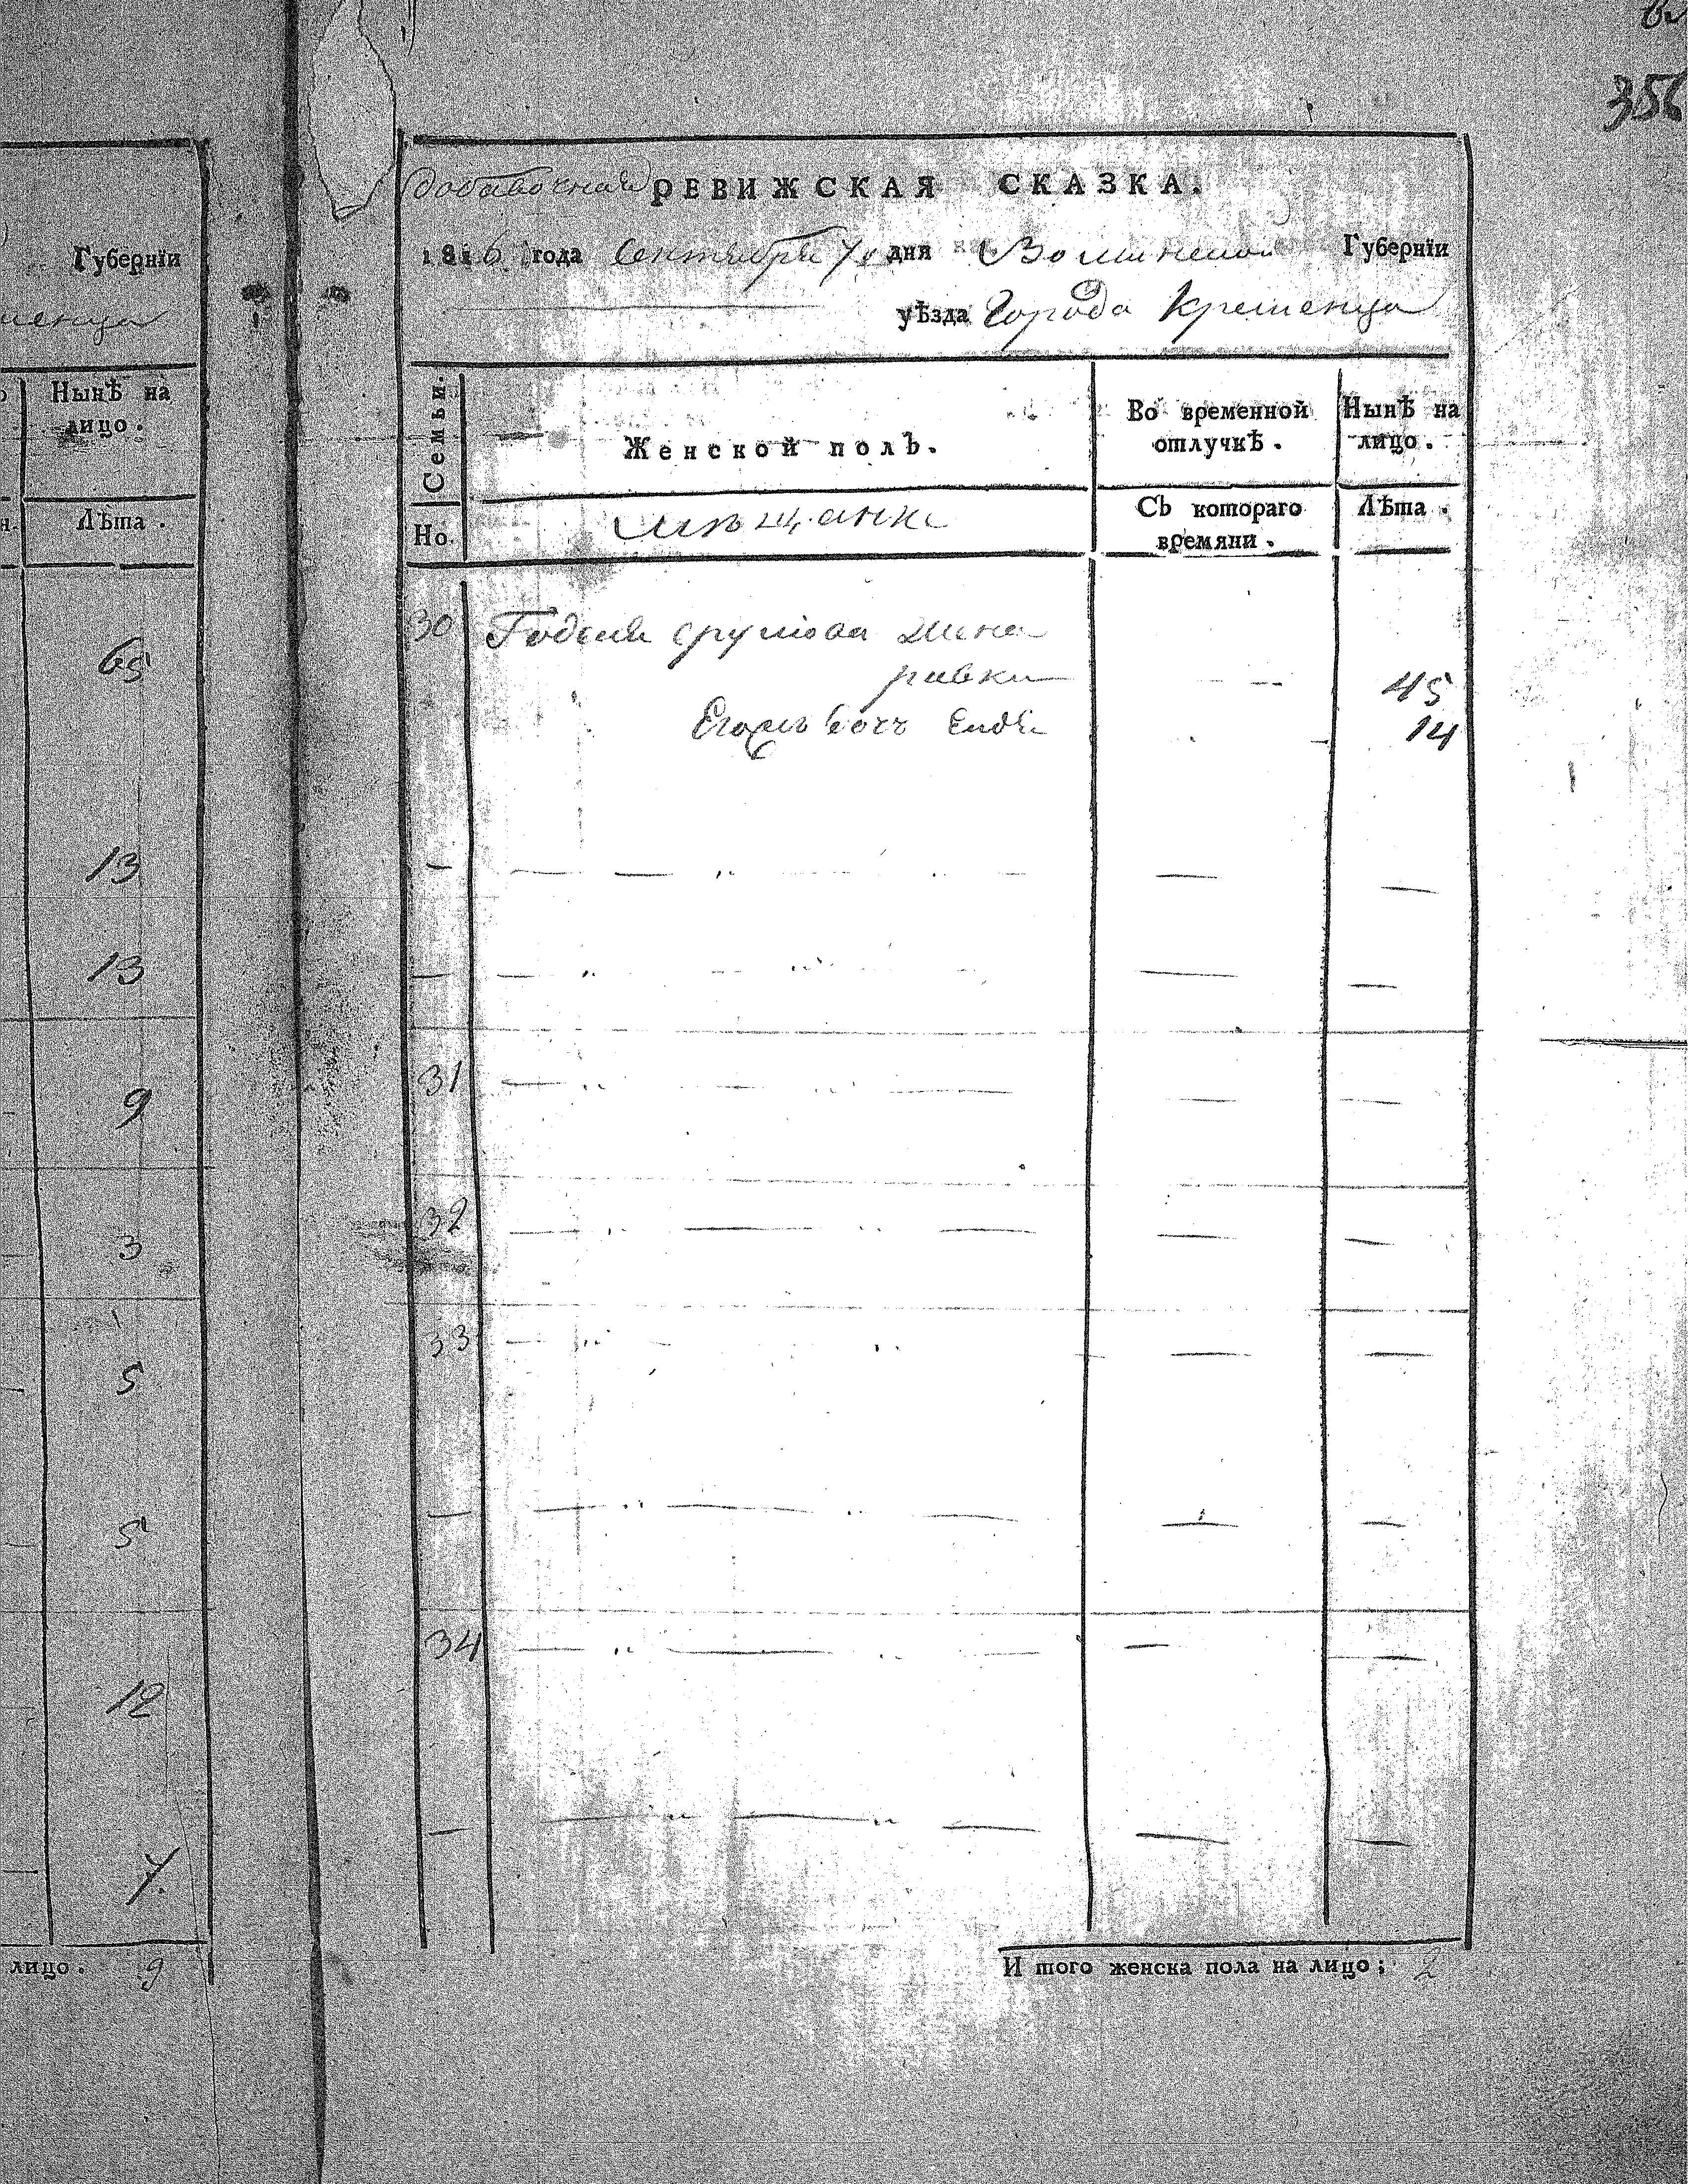 356
Губернїи
Нынѣ на
лицо.
Лѣта.
65
13
13
9
3
5
5
12
7.
лицо. 9
добавочная РЕВИЖСКАЯ СКАЗКА.
1816 года Сентября 7 дня Волынской Губернїи
уѣзда Города Кременца
Семьи.
Женской полъ.
Во временной
отлучкѣ.
Нынѣ на
лицо.
Но.
мѣщанке
Съ котораго
времяни.
Лѣта.
30
жена
ривка
45
Дочь
14
31
32
33
34
И того женска пола на лицо; 2